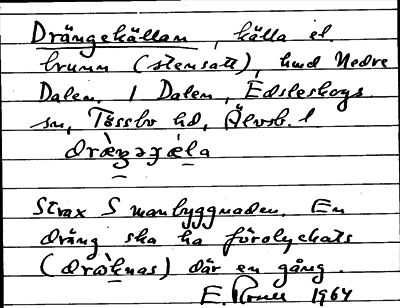 Drängekällan, källa el.
brunn (stensatt), hmd Nedre
Dalen, 1 Dalen, Edsleskogs
sn, Tössbo hd, Älvsb. l
Strax S manbyggnaden. En
dräng ska ha förolyckats
(dräknas) där en gång.
E. 1964